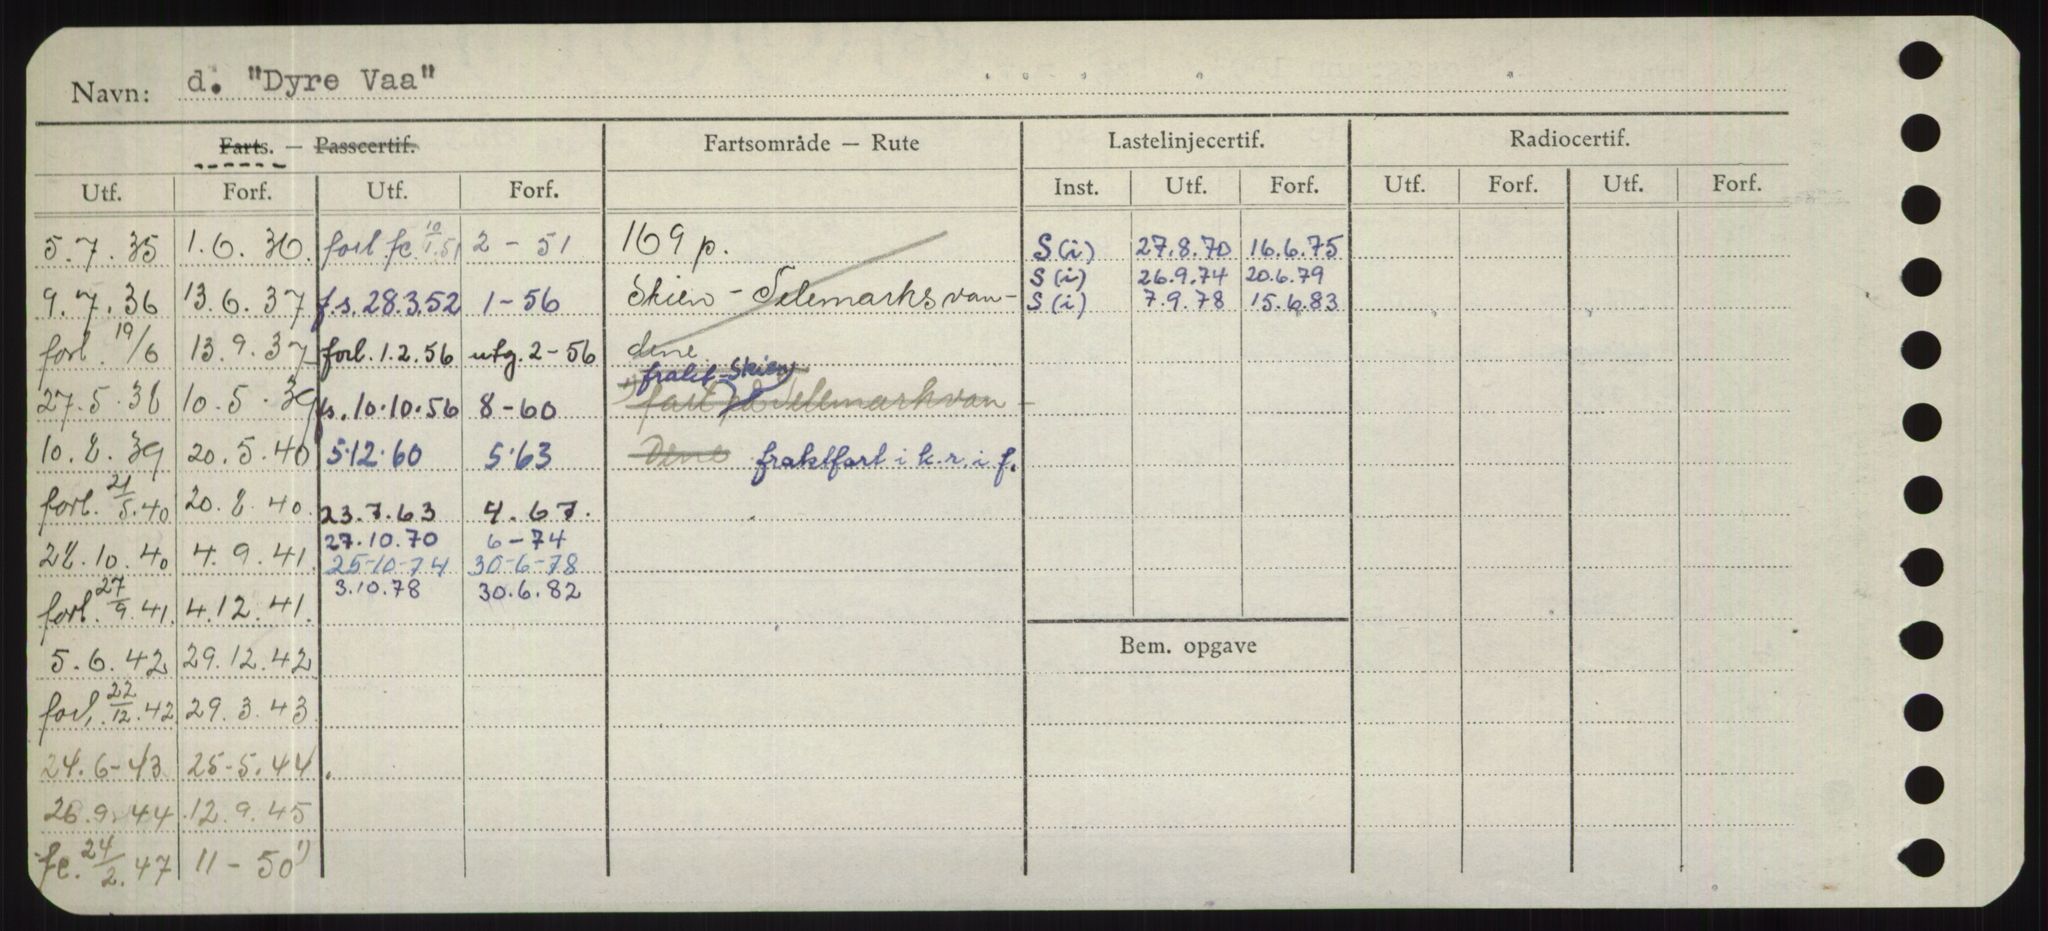 Navn: d. "Dyre Vaa"
Farts. — Passcertif. Fartsområde — Rute Lastelinjecertif. Radiocertif.
Utf. Forf. Utf. Forf. Inst. Utf. Forf. Utf. Forf. Utf. Forf.
5.7.35 1.6.36. forl. fc. 10/1.51 2 - 51 169 p. S(i) 27.8.70 16.6.75
S(i) 26.9.74 20.6.79
9.7.36 13.6.37 f.s. 28.3.52 1-56 Skien - Telemarksvan- S(i) 7.9.78 15.6.83
forl. 19/6 13.9.37 forl. 1.2.56 utg. 2-56 dene
frakt-Skien
27.5.38 10.5.39 fs. 10.10.56 8-60 1) fart på Telemarkvan-
10.8.39 20.5.40 5.12.60 5.63 dene fraktfart i k.r.i.f.
forl. 21/5.40 20.8.40. 23.7.63 4.67.
27.10.70 6-74
28.10.40 4.9.41. 25-10-74 30-6-78
3.10.78 30.6.82
forl. 27/9.41. 4.12.41.
5.6.42 29.12.42 Bem. opgave
forl. 22/12.42 29.3.43
24.6-43 25-5.44.
26.9.44 12.9.45
fc. 24/2.47 11-50 1)